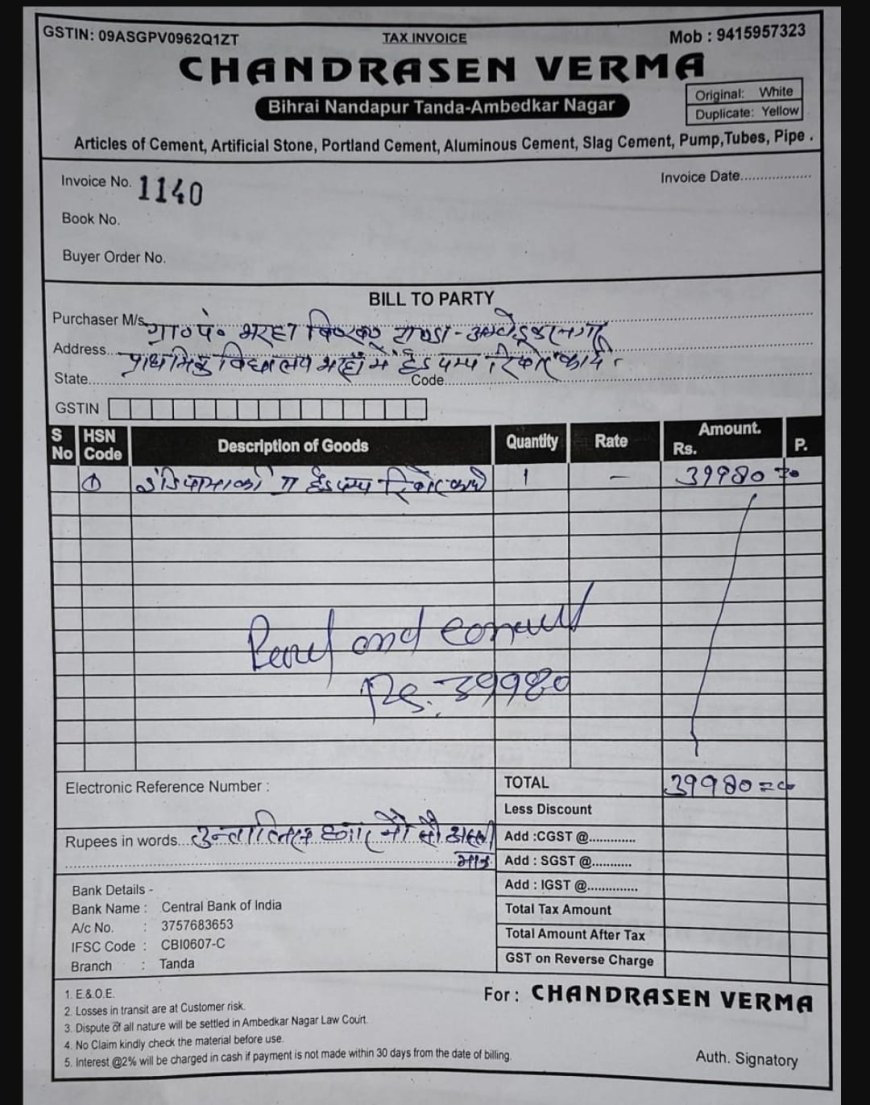 GSTIN: 09ASGPV0962Q1ZT TAX INVOICE Mob : 9415957323
CHANDRASEN VERMA
Bihrai Nandapur Tanda-Ambedkar Nagar
Original: White
Duplicate: Yellow
Articles of Cement, Artificial Stone, Portland Cement, Aluminous Cement, Slag Cement, Pump,Tubes, Pipe .
Invoice No. 1140 Invoice Date..................
Book No.
Buyer Order No.
BILL TO PARTY
Purchaser M/s. ग्रा० पं०
Address... प्राथमिक विद्यालय में हैंड पम्प रिबोर कार्य
State............ Code............
GSTIN
S No HSN Code Description of Goods Quantity Rate Amount. Rs. P.
① हैंडपम्प रिबोर कार्य 1 — 39980 =00
and
Rs. 39980
Electronic Reference Number : TOTAL 39980=00
Less Discount
Rupees in words... नौ सौ अस्सी Add :CGST @.............
मात्र Add : SGST @...........
Bank Details - Add : IGST @..............
Bank Name : Central Bank of India Total Tax Amount
A/c No. : 3757683653
IFSC Code : CBI0607-C Total Amount After Tax
Branch : Tanda GST on Reverse Charge
1. E.& O.E. For : CHANDRASEN VERMA
2. Losses in transit are at Customer risk.
3. Dispute of all nature will be settled in Ambedkar Nagar Law Court.
4. No Claim kindly check the material before use.
5. Interest @2% will be charged in cash if payment is not made within 30 days from the date of billing. Auth. Signatory